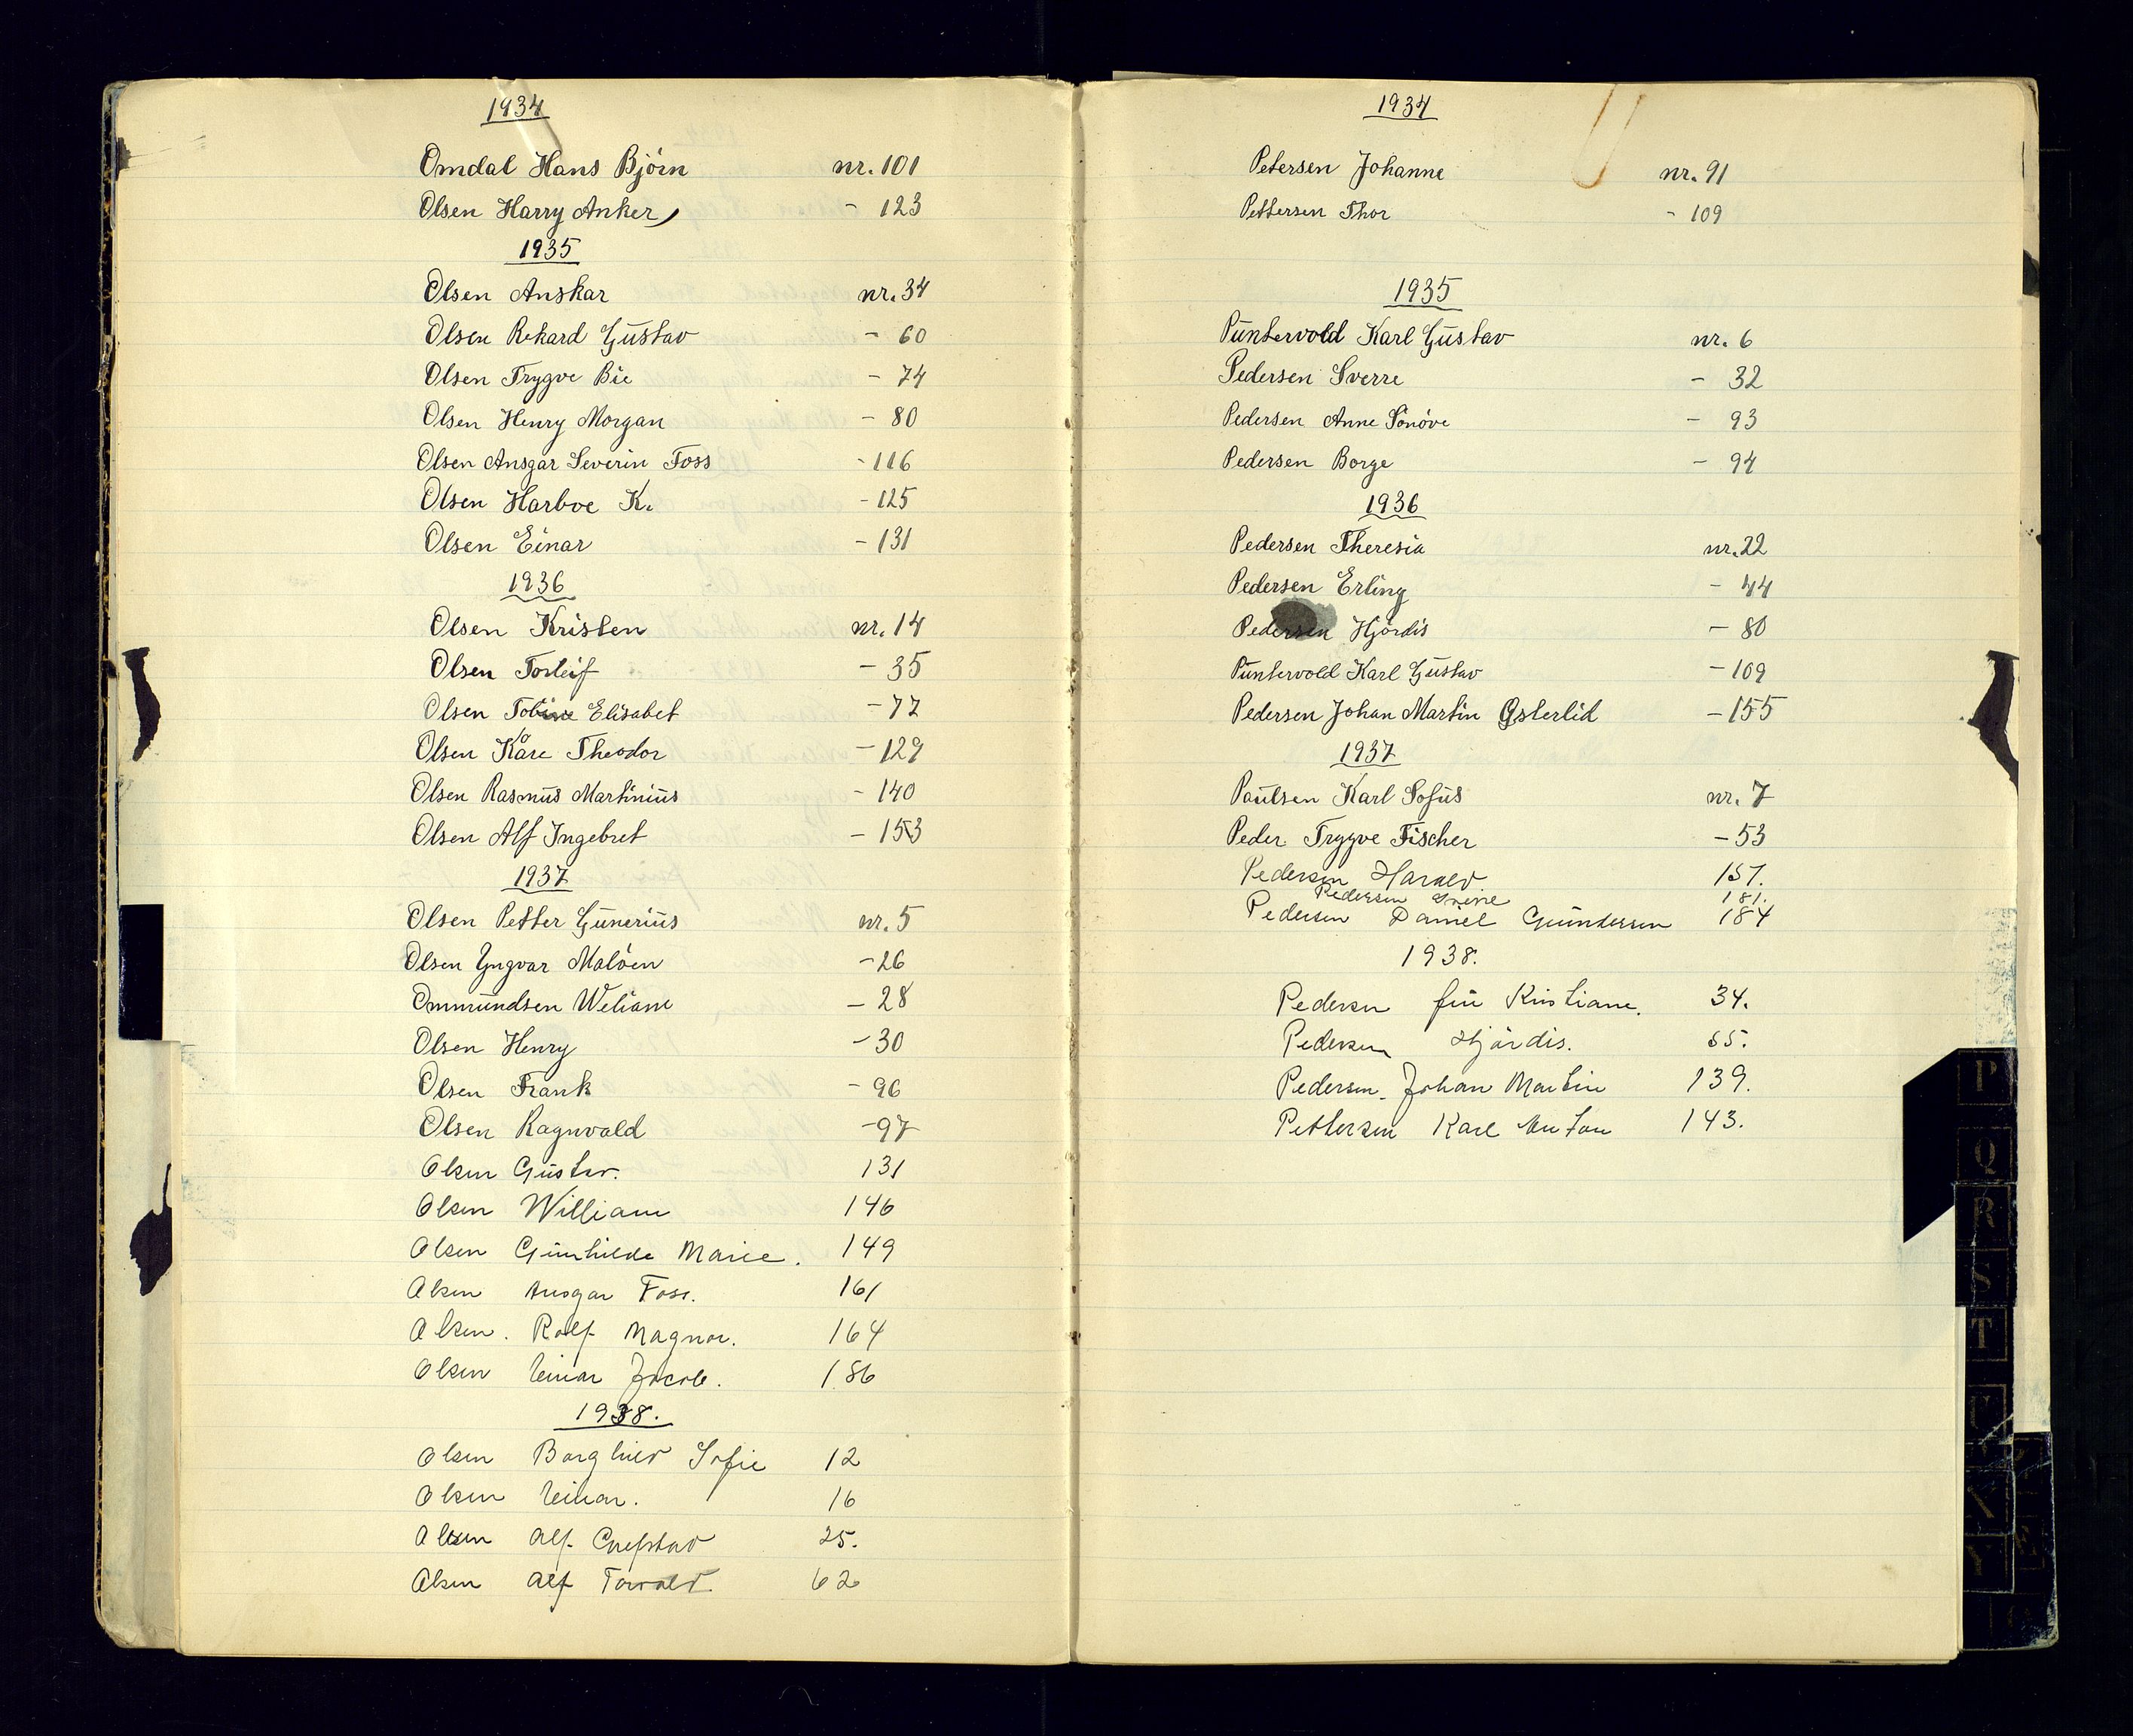 1934
Omdal Hans Bjørn nr. 101
Olsen Harry Anker - 123
1935
Olsen Anskar nr. 34
Olsen Rikard Gustav - 60
Olsen Trygve Bie - 74
Olsen Henry Morgan - 80
Olsen Ansgar Severin Foss - 116
Olsen Harboe K. - 125
Olsen Einar - 131
1936
Olsen Kristen nr. 14
Olsen Torleif - 35
Olsen Tobine Elisabet - 77
Olsen Kåre Theodor - 129
Olsen Rasmus Martinius - 140
Olsen Alf Ingebret - 153
1937
Olsen Petter Gunerius nr. 5
Olsen Yngvar Maløen - 26
Ommundsen Weliam - 28
Olsen Henry - 30
Olsen Frank - 96
Olsen Ragnvald - 97
Olsen Gustav. 131
Olsen William 146
Olsen Gunhilde Marie. 149
Olsen Ansgar Foss. 161
Olsen. Rolf Magnar. 164
Olsen Einar Jacob. 186
1938.
Olsen Borghild Sofie 12
Olsen Einar. 16
Olsen Alf 25.
Olsen Alf Torvald. 62
1934
Petersen Johanne nr. 91
Pettersen Thor - 109
1935
Puntervold Karl Gustav nr. 6
Pedersen Sverre - 32
Pedersen Anne Sønøve - 93
Pedersen Borge - 94
1936
Pedersen Theresia nr. 22
Pedersen Erling - 44
Pedersen Hjørdis - 80
Puntervold Karl Gustav - 109
Pedersen Johan Martin Østerlid - 155
1937
Paulsen Karl Sofus nr. 7
Peder Trygve Fischer - 53
Pedersen Harald 157.
Pedersen 181.
Pedersen Daniel Gundersen 184
1938.
Pedersen Kristiane. 34.
Pedersen Hjørdis. 65.
Pedersen. Johan Martin 139.
Pettersen Karl Anton 143.
P
Q
R
S
T